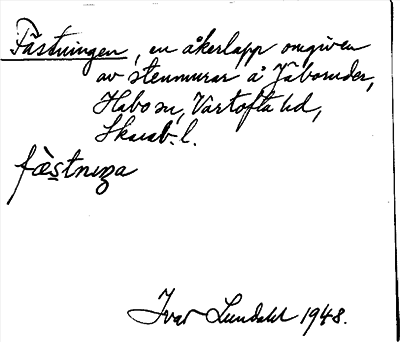 Fästningen, en åkerlapp omgiven
av stenmurar å Jäboruder,
Habo sn, Vartofta hd,
Skarab. l.
fæ̀stnιŋa
Ivar Lundahl 1948.